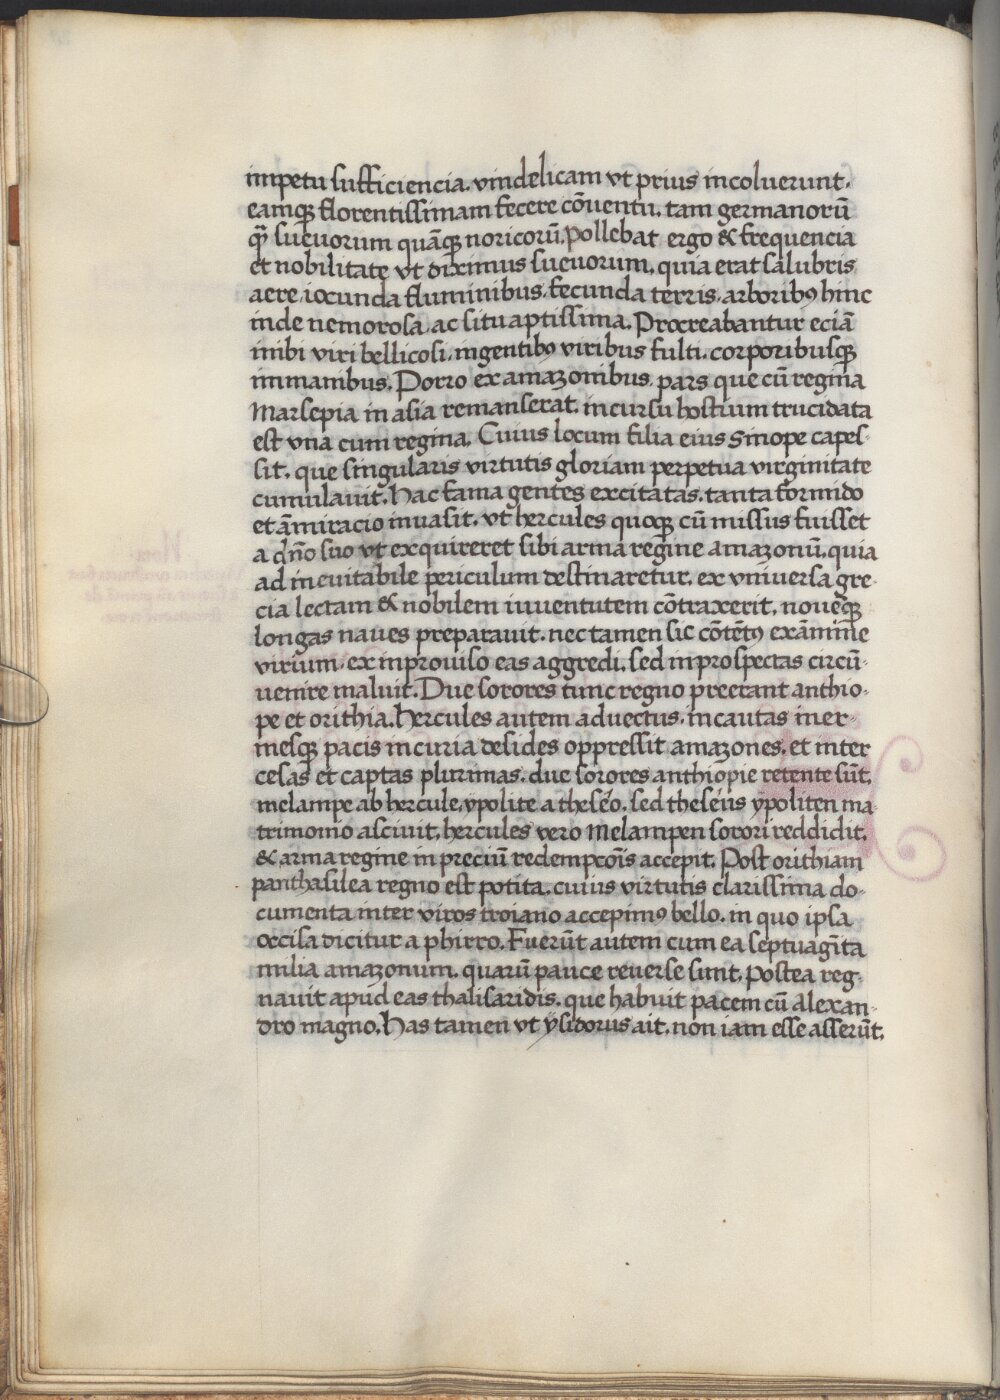 impetu sufficiencia. vindelicam vt prius incoluerunt.
eamqꝫ florentissimam fecere cōuentu. tam germanorū
qꝫ̄ sueuorum quāqꝫ noricorū. Pollebat ergo & frequencia
et nobilitate vt diximus sueuorum. quia erat salubris
aere. iocunda fluminibus. fecunda terris. arboribꝰ hinc
inde nemorosa. ac situ aptissima. Procreabantur eciā
inibi viri bellicosi. ingentibꝰ viribus fulti. corporibusqꝫ
immanibus. Porro ex amazonibus pars que cū regina
Marsepia in asia remanserat. incursu hostium trucidata
est vna cum regina. Cuius locum filia eius Sinope capes-
sit. que singularis virtutis gloriam perpetua virginitate
cumulauit. Hac fama gentes excitatas. tanta formido
et āmiracio inuasit. vt hercules quoqꝫ cū missus fuisset
a dn̄o suo vt exquireret sibi arma regine amazonū. quia
ad ineuitabile periculum destinaretur. ex vniuersa gre-
cia lectam & nobilem iuuentutem cōtraxerit. nouēqꝫ
longas naues preparauit. nec tamen sic cōtētꝰ exāmīne
virium. ex inprouiso eas aggredi. sed inprospectas circū-
uenire maluit. Due sorores tunc regno preerant anthio-
pe et orithia. Hercules autem aduectus. incautas iner-
mesqꝫ pacis incuria desides oppressit amazones. et inter
cesas et captas plurimas. due sorores anthiopie retente sūt.
melampe ab hercule. ypolite a theseo. sed theseus ypoliten ma
trimonio asciuit. hercules vero Melampen sorori reddidit.
& arma regine in preciū redempcōis accepit. Post orithiam
panthasilea regno est potita. cuius virtutis clarissima do-
cumenta inter viros troiano accepimꝰ bello. in quo ipsa
occisa dicitur a phirro. Fuerūt autem cum ea septuagīta
milia amazonum. quarū pauce reuerse sunt. Postea reg-
nauit apud eas thalisaridis. que habuit pacem cū alexan-
dro magno. Has tamen vt ysidorus ait. non iam esse asserūt.